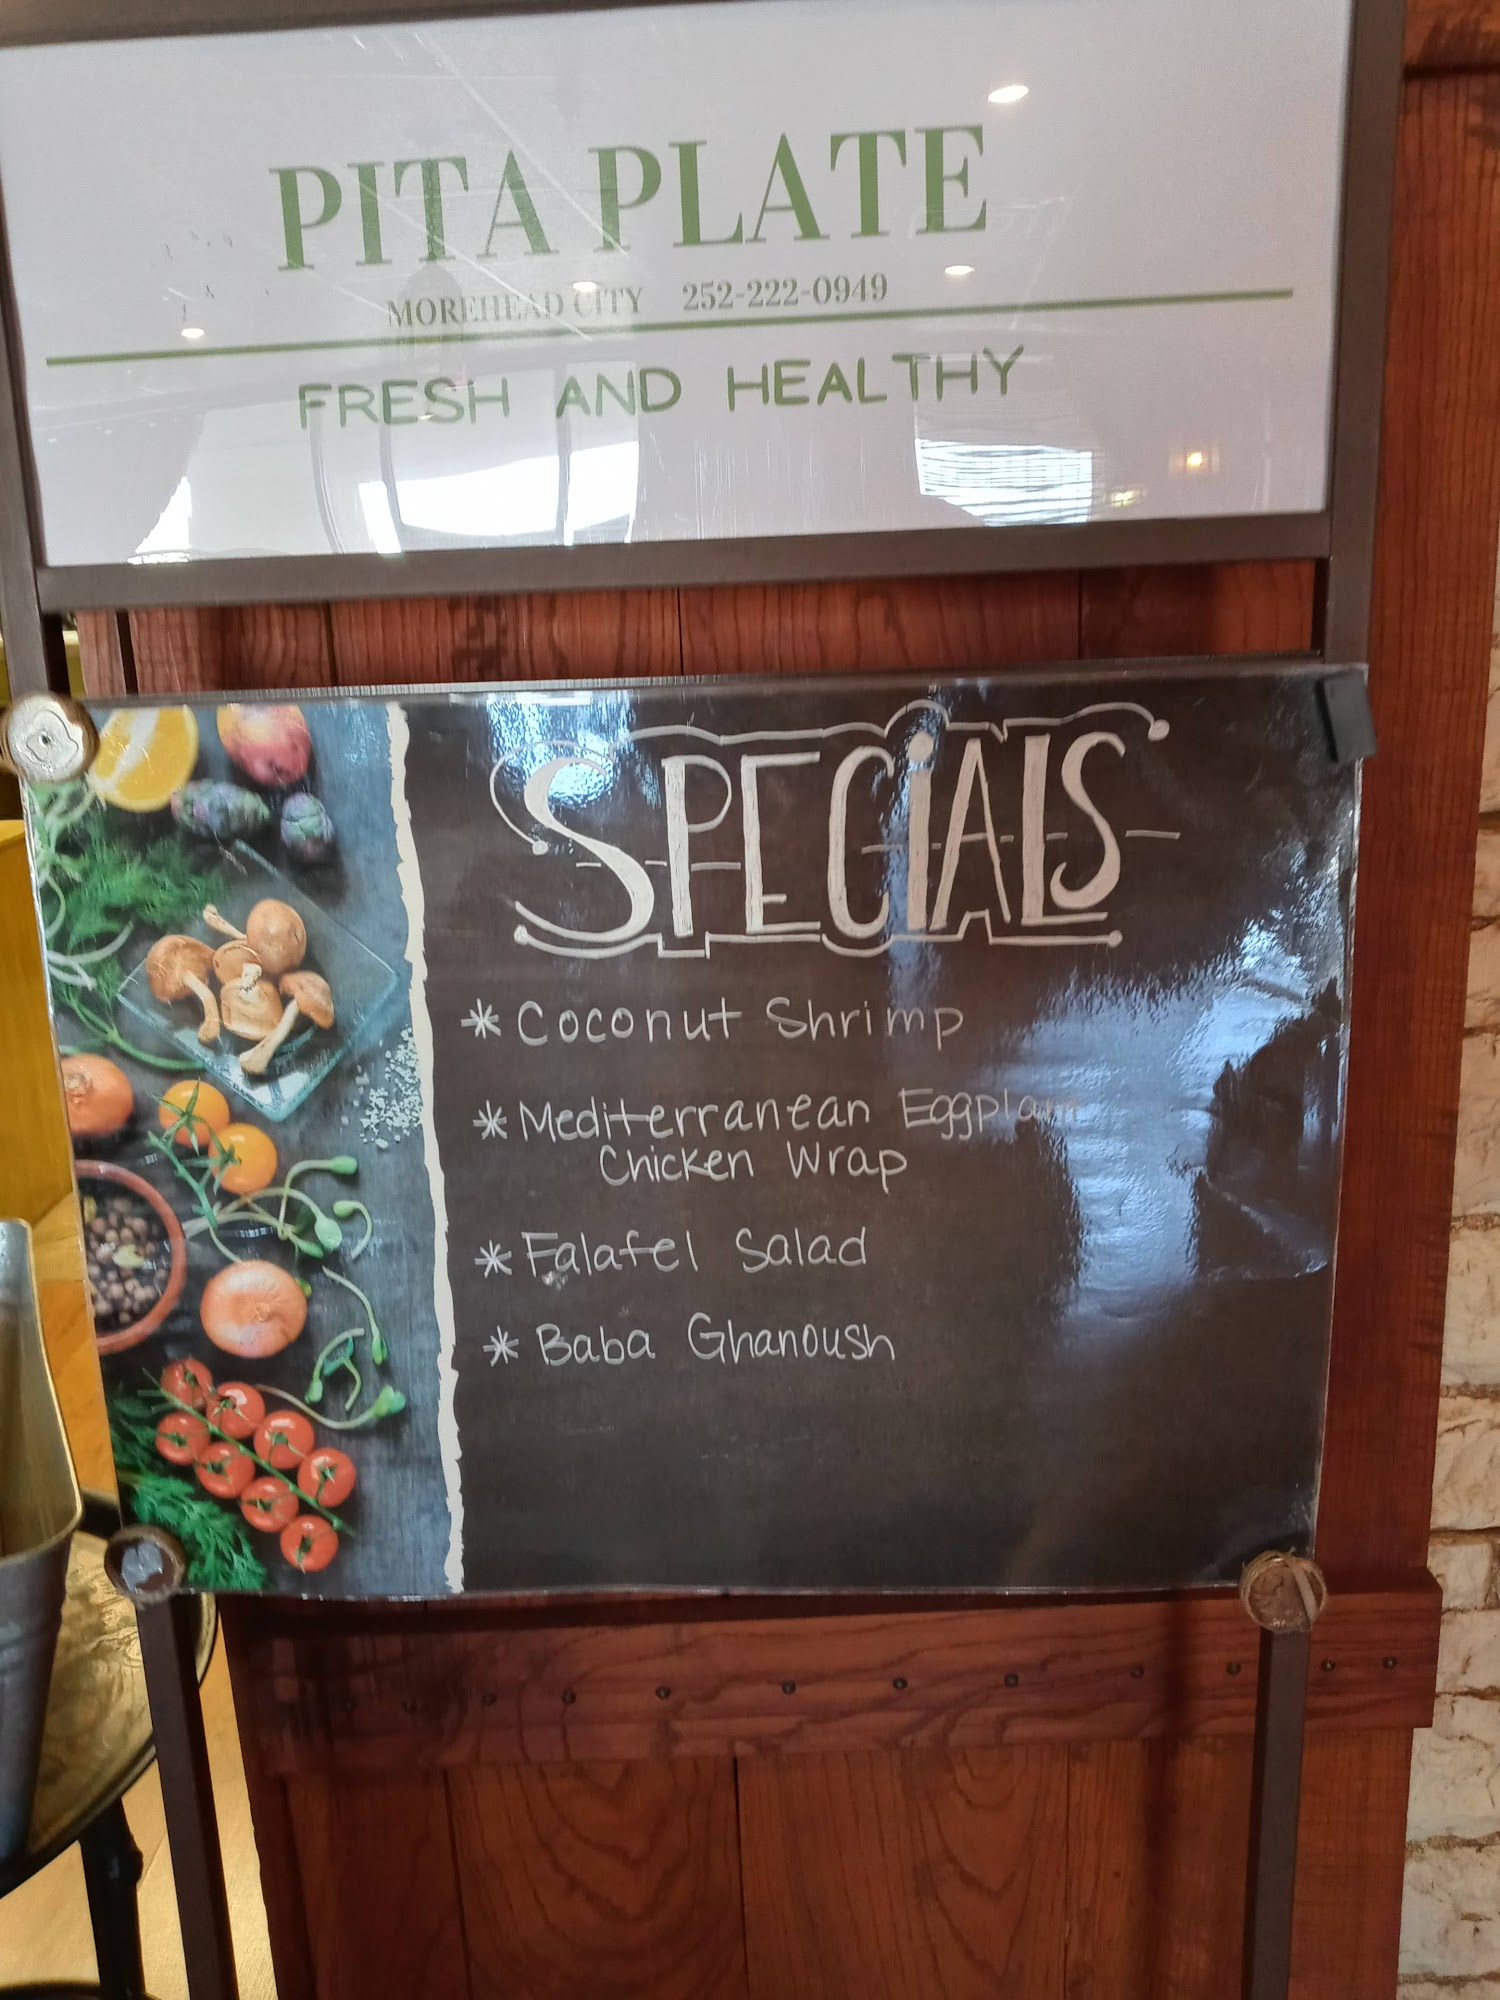 PITA PLATE
MOREHEAD CITY 252-222-0949
FRESH AND HEALTHY
SPECIALS
* Coconut Shrimp
* Mediterranean Eggplant
Chicken Wrap
* Falafel Salad
* Baba Ghanoush